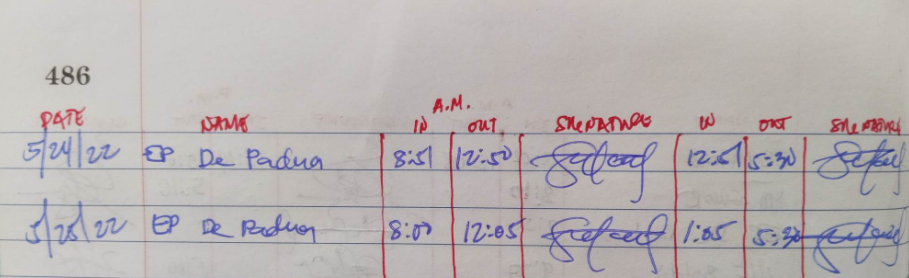 486
A.M.
DATE NAME IN OUT SIGNATURE IN OUT SIGNATURE
5/24/22 EP De Padua 8:51 12:50 12:51 5:30
5/25/22 EP De Padua 8:00 12:05 1:05 5:30